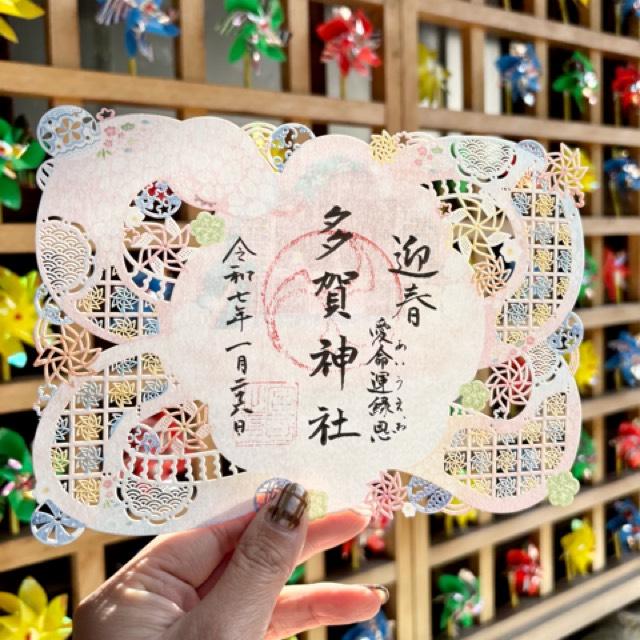 迎春
愛命運縁恩
あいうえお
多賀神社
令和七年一月二五日